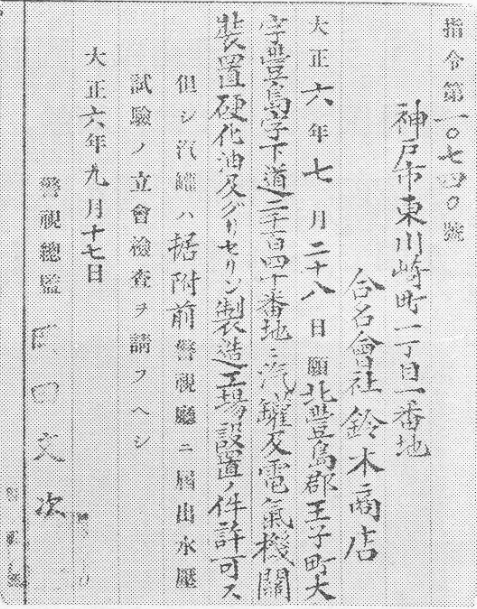 指令第一〇七四〇號
神戸市東川崎町一丁目一番地
合名會社鈴木商店
大正六年七月二十八日願北豐島郡王子町大
字豐島字下道二千百四十番地ニ汽罐及電氣機關
裝置硬化油及グリセリン製造工場設置ノ件許可ス
但シ汽罐ハ据附前警視廳ニ届出水壓
試驗ノ立會檢査ヲ請フヘシ
大正六年九月十七日
警視總監 岡田文次